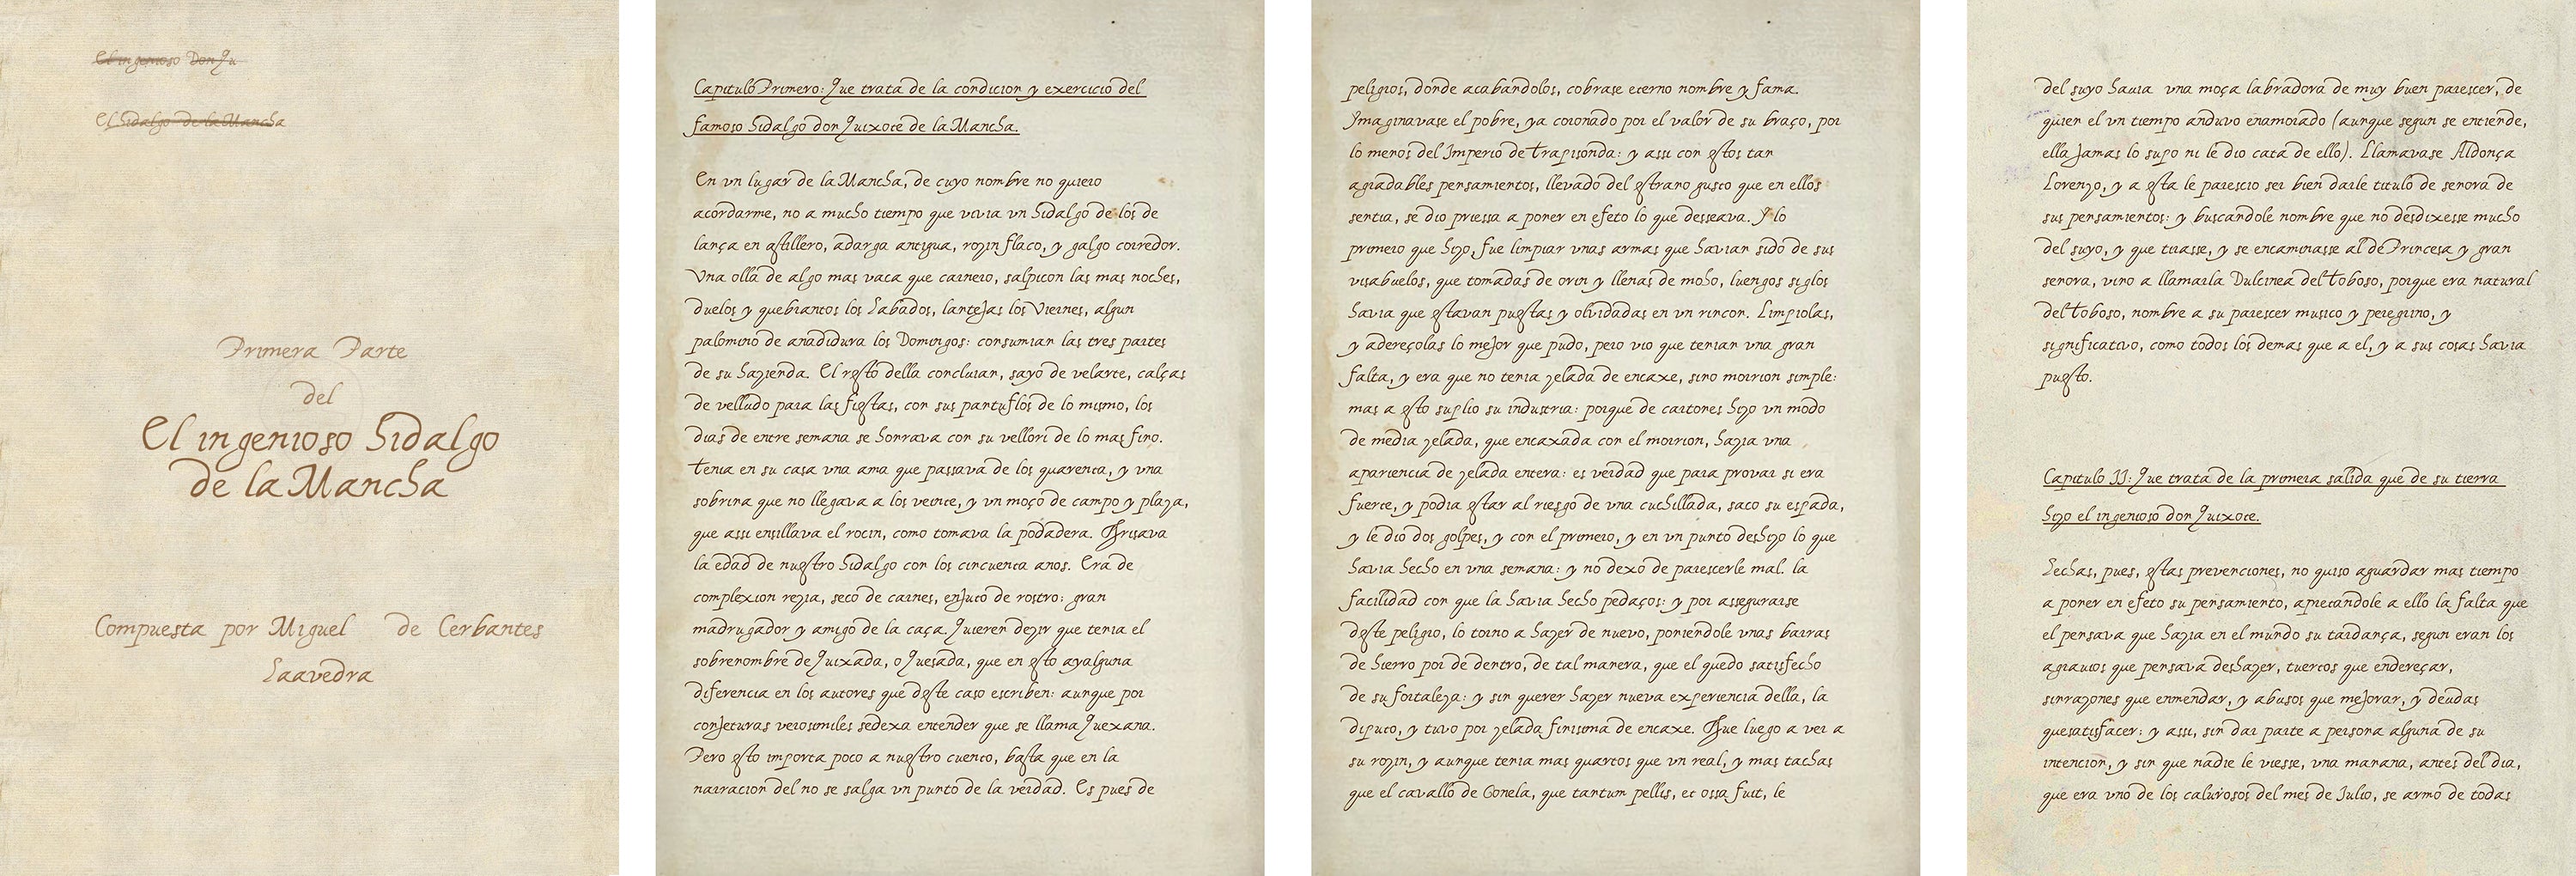 El ingenioso Don Qu
El hidalgo de la Mancha
Primera Parte
del
El ingenioso hidalgo
de la Mancha
Compuesta por Miguel de Cerbantes
Saavedra
Capitulo Primero: Que trata de la condicion y exercicio del
famoso hidalgo don Quixote de la Mancha.
En vn lugar de la Mancha, de cuyo nombre no quiero
acordarme, no a mucho tiempo que vivia vn hidalgo de los de
lança en astillero, adarga antigua, rozin flaco, y galgo corredor.
Vna olla de algo mas vaca que carnero, salpicon las mas noches,
duelos y quebrantos los Sabados, lantejas los Viernes, algun
palomino de anadidura los Domingos: consumian las tres partes
de su hazienda. El resto della concluian, sayo de velarte, calças
de velludo para las fiestas, con sus pantuflos de lo mismo, los
dias de entre semana se honrava con su vellori de lo mas fino.
Tenia en su casa vna ama que passava de los quarenta, y vna
sobrina que no llegava a los veinte, y vn moço de campo y plaza,
que assi ensillava el rocin, como tomava la podadera. Frisava
la edad de nuestro hidalgo con los cincuenta anos. Era de
complexion rezia, seco de carnes, enjuto de rostro: gran
madrugador y amigo de la caça. Quieren dezir que tenia el
sobrenombre de Quixada, o Quesada, que en esto ayalguna
diferencia en los autores que deste caso escriben: aunque por
conjeturas verosimiles sedexa entender que se llama Quexana.
Pero esto importa poco a nuestro cuento, basta que en la
narracion del no se salga vn punto de la verdad. Es pues de
peligros, donde acabandolos, cobrase eterno nombre y fama.
Ymaginavase el pobre, ya coronado por el valor de su braço, por
lo menos del Imperio de Trapisonda: y assi con estos tan
agradables pensamientos, llevado del estrano gusto que en ellos
sentia, se dio priessa a poner en efeto lo que desseava. Y lo
primero que hizo, fue limpiar vnas armas que havian sido de sus
visabuelos, que tomadas de orin y llenas de moho, luengos siglos
havia que estavan puestas y olvidadas en vn rincon. Limpiolas,
y adereçolas lo mejor que pudo, pero vio que tenian vna gran
falta, y era que no tenia zelada de encaxe, sino morrion simple:
mas a esto suplio su industria: porque de cartones hizo vn modo
de media zelada, que encaxada con el morrion, hazia vna
apariencia de zelada entera: es verdad que para provar si era
fuerte, y podia estar al riesgo de vna cuchillada, saco su espada,
y le dio dos golpes, y con el primero, y en vn punto deshizo lo que
havia hecho en vna semana: y no dexó de parescerle mal. la
facilidad con que la havia hecho pedaços: y por assegurarse
deste peligro, lo torno a hazer de nuevo, poniendole vnas barras
de hierro por de dentro, de tal manera, que el quedo satisfecho
de su fortaleza: y sin querer hazer nueva experiencia della, la
diputo, y tuvo por zelada finisima de encaxe. Fue luego a ver a
su rozin, y aunque tenia mas quartos que vn real, y mas tachas
que el cavallo de Gonela, que tantum pellis, et ossa fuit, le
del suyo havia vna moça labradora de muy buen parescer, de
quien el vn tiempo anduvo enamorado (aunque segun se entiende,
ella jamas lo supo ni le dio cata de ello). Llamavase Aldonça
Lorenzo, y a esta le parescio ser bien darle titulo de senora de
sus pensamientos: y buscandole nombre que no desdixesse mucho
del suyo, y que tirasse, y se encaminasse al de Princesa y gran
senora, vino a llamarla Dulcinea del Toboso, porque era natural
del Toboso, nombre a su parescer musico y peregrino, y
significativo, como todos los demas que a el, y a sus cosas havia
puesto.
Capitulo II: Que trata de la primera salida que de su tierra
hizo el ingenioso don Quixote.
Hechas, pues, estas prevenciones, no quiso aguardar mas tiempo
a poner en efeto su pensamiento, apretandole a ello la falta que
el pensava que hazia en el mundo su tardança, segun eran los
agravios que pensava deshazer, tuertos que endereçar,
sinrazones que enmendar, y abusos que mejorar, y deudas
quesatisfacer: y assi, sin dar parte a persona alguna de su
intencion, y sin que nadie le viesse, vna manana, antes del dia,
que era vno de los calurosos del mes de Julio, se armo de todas